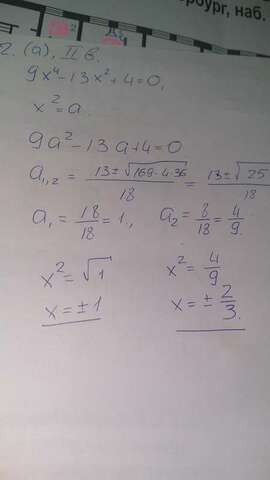 рбург, наб.
2. (а), II в.
9x⁴-13x²+4=0,
x²=a.
9a²-13a+4=0
a₁,₂ = (13±√(169-4·36))/18 = (13±√25)/18
a₁ = 18/18 = 1, a₂ = 8/18 = 4/9.
x²=√1 x²=4/9
x=±1 x=±2/3.